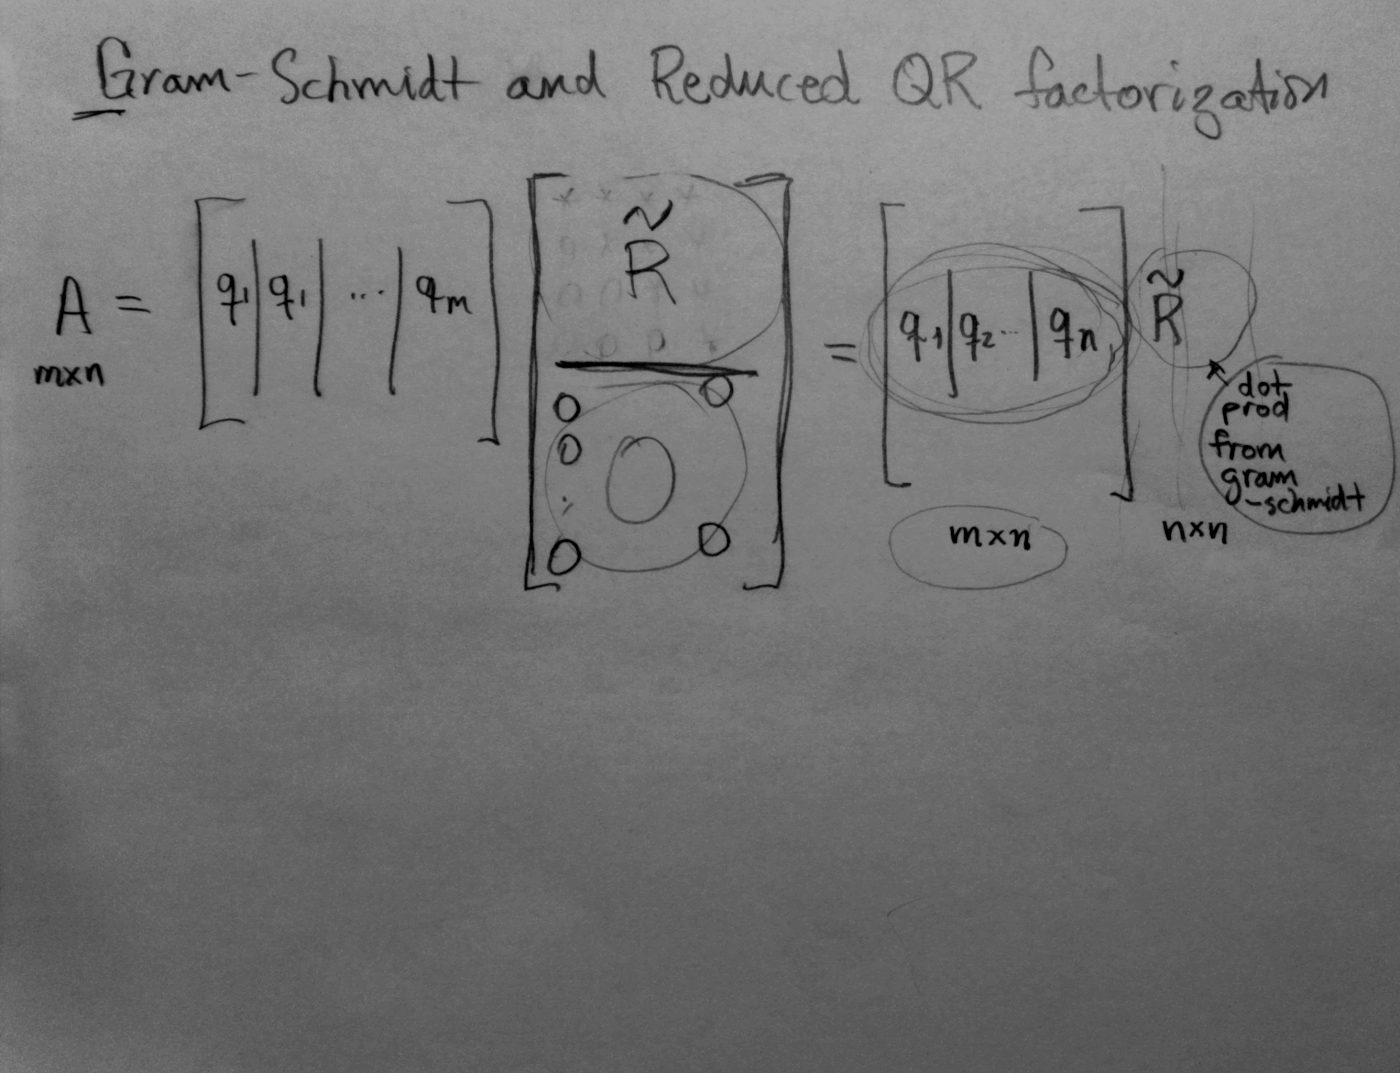 Gram-Schmidt and Reduced QR factorization
A = [ q₁ | q₁ | ... | qₘ ] [ R̃ / 0 0 0 0 0 0 ] = [ q₁ | q₂ ... | qₙ ] R̃
m×n
dot
prod
from
gram
-schmidt
m×n n×n